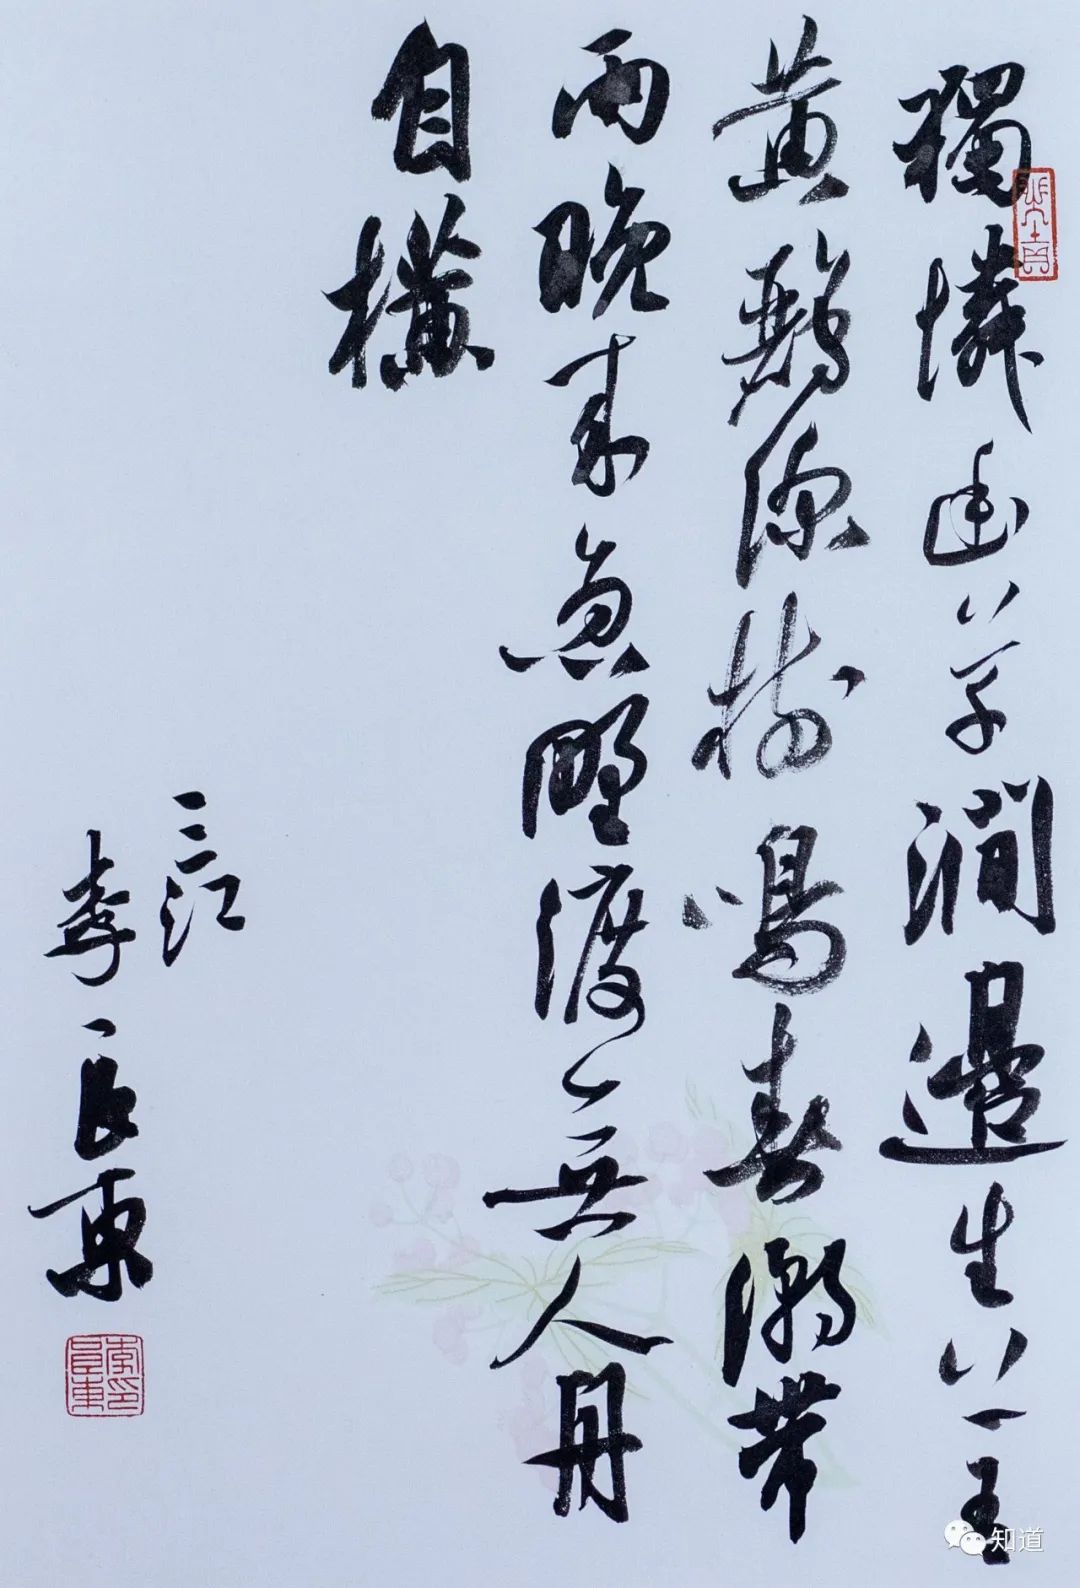 獨憐幽草澗邊生上有
黃鸝深樹鳴春潮帶
雨晚來急野渡無人舟
自橫
三江
李長東
知道